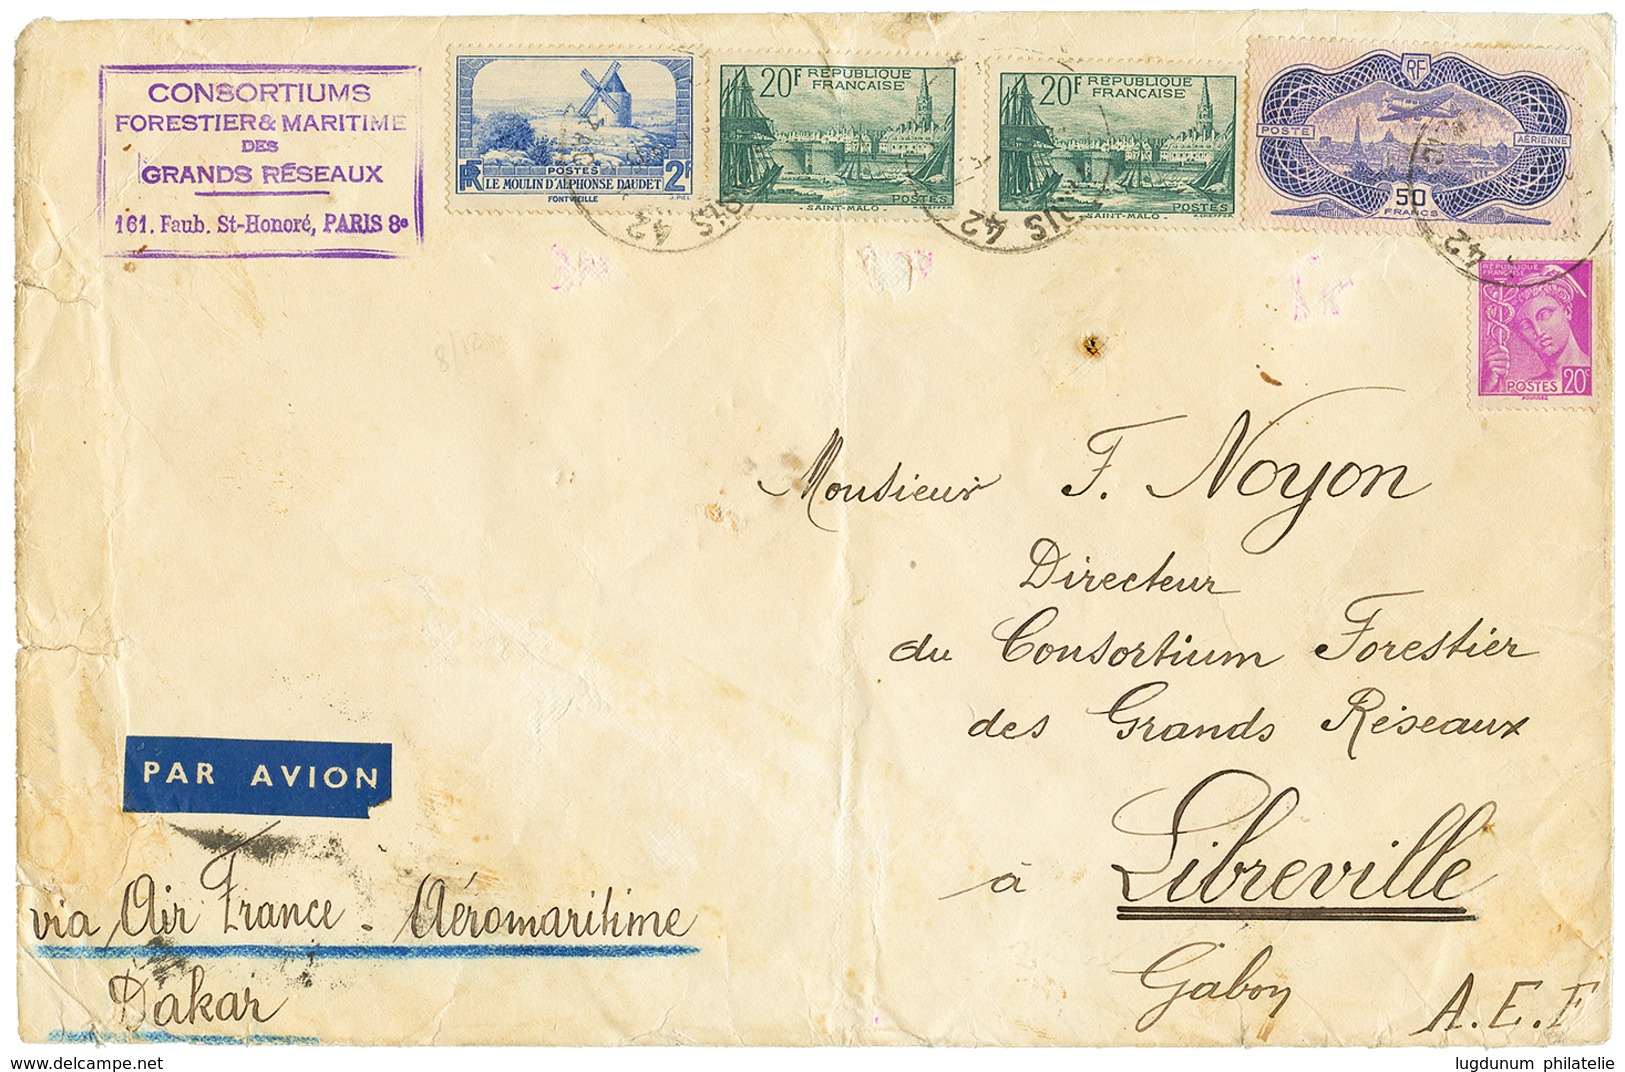 CONSORTIUMS
FORESTIER & MARITIME
DES
GRANDS RÉSEAUX
161. Faub. St-Honoré, PARIS 8e
RF POSTES 2F
LE MOULIN D'ALPHONSE DAUDET
FONTVIEILLE
J. PIEL
20F RÉPUBLIQUE
FRANÇAISE
SAINT-MALO
POSTES
20F RÉPUBLIQUE
FRANÇAISE
SAINT-MALO
POSTES
RF
POSTE AÉRIENNE
50
FRANCS
42
42
42
RÉPUBLIQUE
FRANÇAISE
POSTES 20c
21/8
Monsieur F. Noyon
Directeur
du Consortium Forestier
des Grands Réseaux
à Libreville
Gabon
A.E.F
PAR AVION
via Air France - Aéromaritime
Dakar
lugdunum philatelie